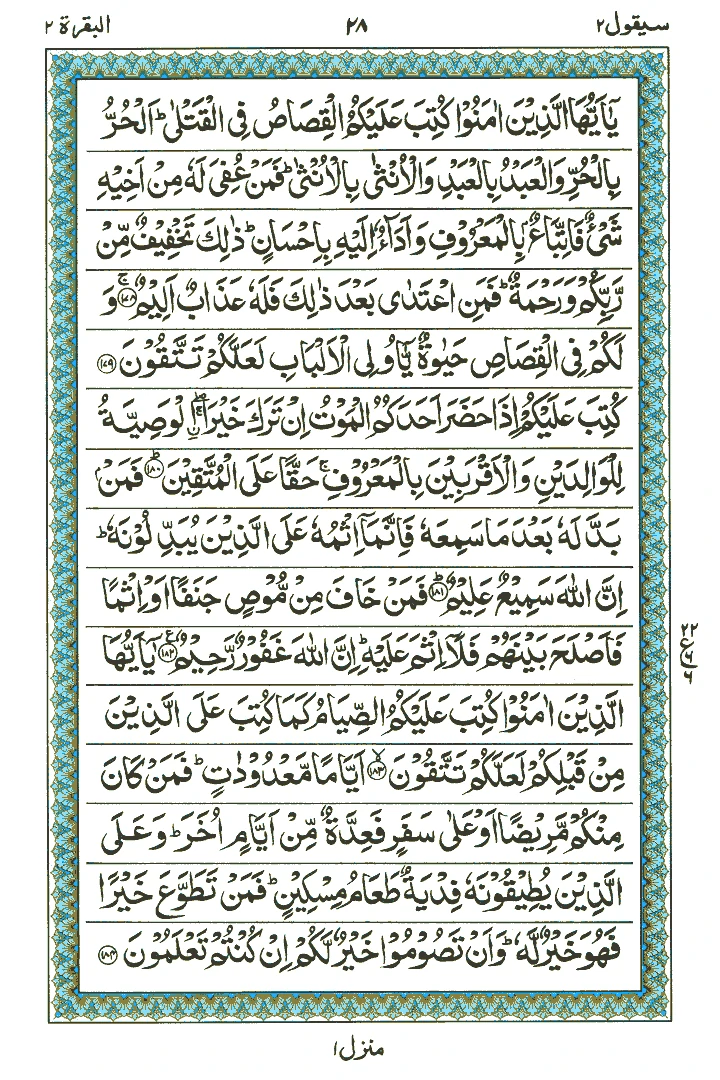 سيقول٢ ٢٨ البقرة ٢
يٰٓاَيُّهَا الَّذِيْنَ اٰمَنُوْا كُتِبَ عَلَيْكُمُ الْقِصَاصُ فِى الْقَتْلٰى ؕ اَلْحُرُّ
بِالْحُرِّ وَالْعَبْدُ بِالْعَبْدِ وَالْاُنْثٰى بِالْاُنْثٰى ؕ فَمَنْ عُفِىَ لَهٗ مِنْ اَخِيْهِ
شَىْءٌ فَاتِّبَاعٌۢ بِالْمَعْرُوْفِ وَاَدَآءٌ اِلَيْهِ بِاِحْسَانٍ ؕ ذٰلِكَ تَخْفِيْفٌ مِّنْ
رَّبِّكُمْ وَرَحْمَةٌ ؕ فَمَنِ اعْتَدٰى بَعْدَ ذٰلِكَ فَلَهٗ عَذَابٌ اَلِيْمٌ ۚ‏﴿۱۷۸﴾ وَ
لَكُمْ فِى الْقِصَاصِ حَيٰوةٌ يّٰٓاُولِى الْاَلْبَابِ لَعَلَّكُمْ تَتَّقُوْنَ ﴿۱۷۹﴾
كُتِبَ عَلَيْكُمْ اِذَا حَضَرَ اَحَدَكُمُ الْمَوْتُ اِنْ تَرَكَ خَيْرَا ۖۚ اۨلْوَصِيَّةُ
لِلْوَالِدَيْنِ وَالْاَقْرَبِيْنَ بِالْمَعْرُوْفِ ۚ حَقًّا عَلَى الْمُتَّقِيْنَ ؕ ﴿۱۸۰﴾ فَمَنْۢ
بَدَّلَهٗ بَعْدَ مَا سَمِعَهٗ فَاِنَّمَآ اِثْمُهٗ عَلَى الَّذِيْنَ يُبَدِّلُوْنَهٗ ؕ
اِنَّ اللّٰهَ سَمِيْعٌ عَلِيْمٌ ؕ ﴿۱۸۱﴾ فَمَنْ خَافَ مِنْ مُّوْصٍ جَنَفًا اَوْ اِثْمًا
فَاَصْلَحَ بَيْنَهُمْ فَلَاۤ اِثْمَ عَلَيْهِ ؕ اِنَّ اللّٰهَ غَفُوْرٌ رَّحِيْمٌ ﴿۱۸۲﴾ ع يٰٓاَيُّهَا
الَّذِيْنَ اٰمَنُوْا كُتِبَ عَلَيْكُمُ الصِّيَامُ كَمَا كُتِبَ عَلَى الَّذِيْنَ
مِنْ قَبْلِكُمْ لَعَلَّكُمْ تَتَّقُوْنَ ۙ ﴿۱۸۳﴾ اَيَّامًا مَّعْدُوْدٰتٍ ؕ فَمَنْ كَانَ
مِنْكُمْ مَّرِيْضًا اَوْ عَلٰى سَفَرٍ فَعِدَّةٌ مِّنْ اَيَّامٍ اُخَرَ ؕ وَعَلَى
الَّذِيْنَ يُطِيْقُوْنَهٗ فِدْيَةٌ طَعَامُ مِسْكِيْنٍ ؕ فَمَنْ تَطَوَّعَ خَيْرًا
فَهُوَ خَيْرٌ لَّهٗ ؕ وَاَنْ تَصُوْمُوْا خَيْرٌ لَّكُمْ اِنْ كُنْتُمْ تَعْلَمُوْنَ ﴿۱۸۴﴾
٢٢
ع ٦
٦
منزل ١